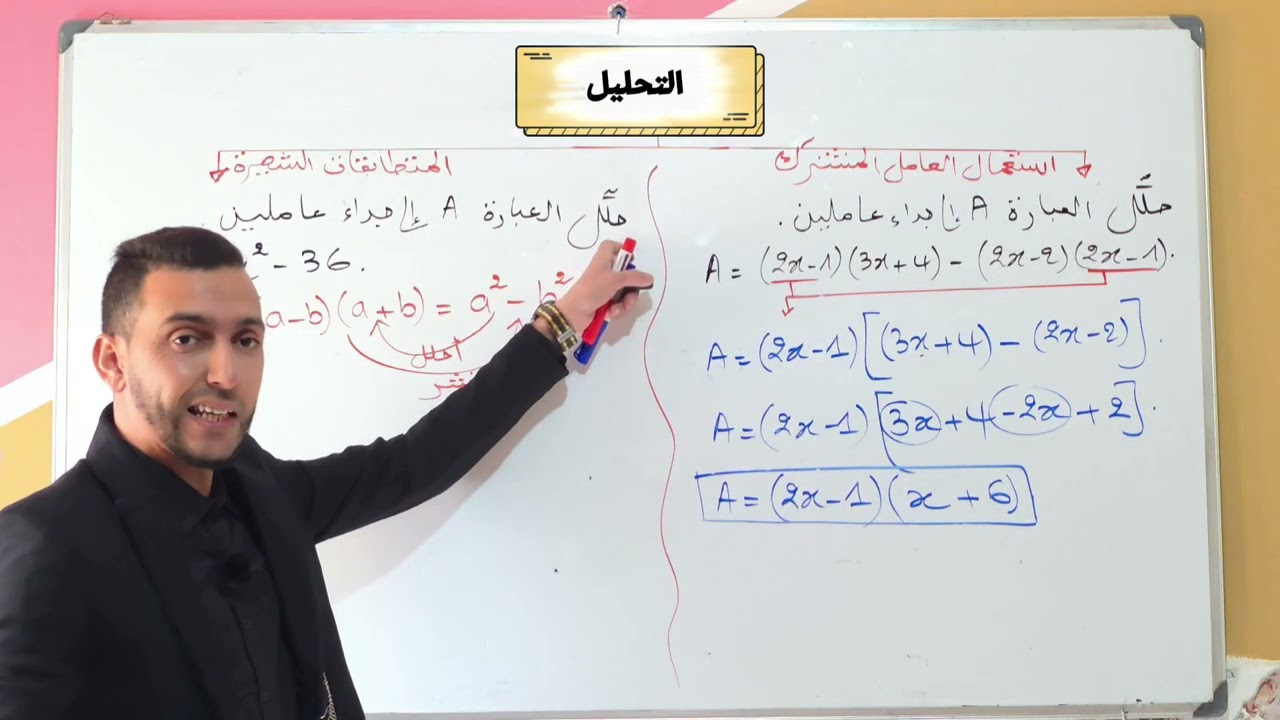 التحليل
استعمال العامل المشترك
حلّل العبارة A إلى جداء عاملين.
A = (2x-1)(3x+4) - (2x-2)(2x-1).
A = (2x-1)[(3x+4) - (2x-2)].
A = (2x-1)[3x+4-2x+2].
A = (2x-1)(x+6)
المتطابقات الشهيرة
حلّل العبارة A إلى جداء عاملين.
² - 36.
a-b)(a+b) = a² - b²
أحلل